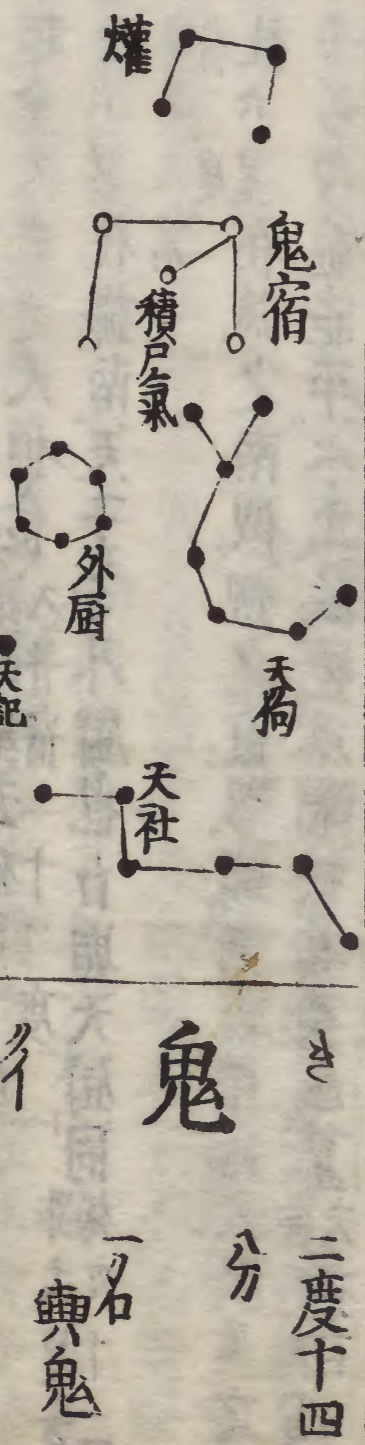 爟
鬼宿
積尸氣
外厨
天狗
天記
天社
き
鬼
二度十四
八分
一名
輿鬼